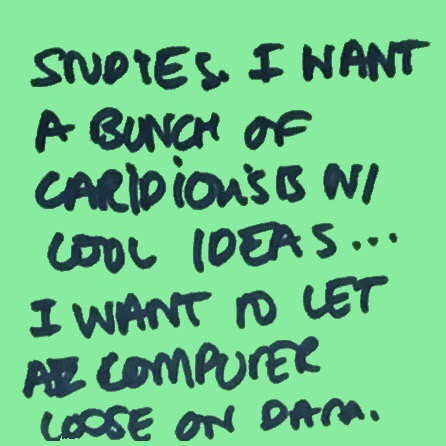 STUDIES. I WANT
A BUNCH OF
CARDIOLOGISTS W/
COOL IDEAS...
I WANT TO LET
A COMPUTER
LOOSE ON DATA.